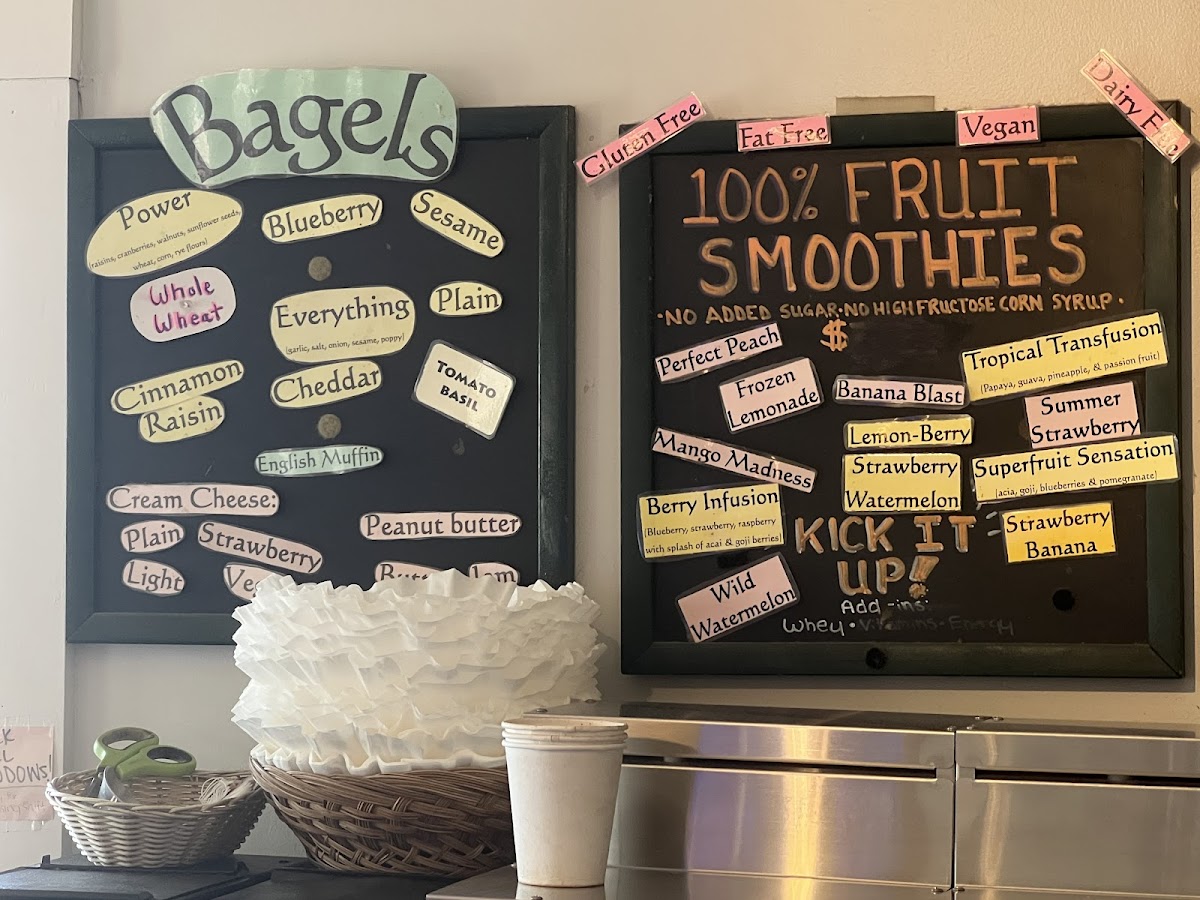 Bagels
Power
(raisins, cranberries, walnuts, sunflower seeds,
wheat, corn, rye flours)
Blueberry
Sesame
Whole
Wheat
Everything
(garlic, salt, onion, sesame, poppy)
Plain
Cinnamon
Raisin
Cheddar
TOMATO
BASIL
English Muffin
Cream Cheese:
Plain
Strawberry
Light
Peanut butter
Gluten Free
Fat Free
Vegan
Dairy Free
100% FRUIT
SMOOTHIES
·NO ADDED SUGAR·NO HIGH FRUCTOSE CORN SYRUP·
$
Perfect Peach
Frozen
Lemonade
Banana Blast
Tropical Transfusion
(Papaya, guava, pineapple, & passion fruit)
Summer
Strawberry
Lemon-Berry
Mango Madness
Strawberry
Watermelon
Superfruit Sensation
(acia, goji, blueberries & pomegranate)
Berry Infusion
(Blueberry, strawberry, raspberry
with splash of acai & goji berries)
Strawberry
Banana
KICK IT
UP!
Wild
Watermelon
Add-ins:
Whey · Vitamins · Energy